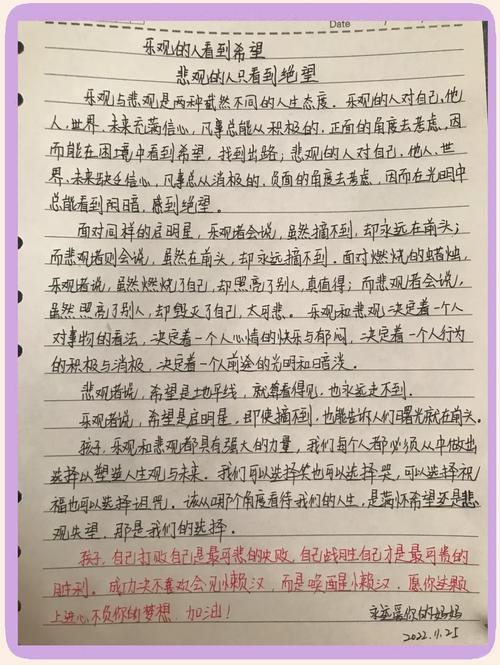 Date
乐观的人看到希望
悲观的人只看到绝望
乐观与悲观是两种截然不同的人生态度。乐观的人对自己、他
人、世界、未来充满信心，凡事总能从积极的、正面的角度去考虑，因
而能在困境中看到希望，找到出路；悲观的人对自己、他人、世
界、未来缺乏信心，凡事总从消极的、负面的角度去考虑，因而在光明中
总能看到阴暗，感到绝望。
面对同样的启明星，乐观者会说，虽然摘不到，却永远在前头；
而悲观者则会说，虽然在前头，却永远摘不到。面对燃烧的蜡烛，
乐观者说，虽然燃烧了自己，却照亮了别人，真值得；而悲观者会说，
虽然照亮了别人，却毁灭了自己，太可悲。乐观和悲观，决定着一个人
对事物的看法，决定着一个人心情的快乐与郁闷，决定着一个人行为
的积极与消极，决定着一个人前途的光明和暗淡。
悲观者说，希望是地平线，就算看得见，也永远走不到。
乐观者说，希望是启明星，即使摘不到，也能告诉人们曙光就在前头。
孩子，乐观和悲观都具有强大的力量，我们每个人都必须从中做出
选择以塑造人生观与未来。我们可以选择笑也可以选择哭，可以选择祝
福也可以选择诅咒。该从哪个角度看待我们的人生，是满怀希望还是悲
观失望，那是我们的选择。
孩子，自己打败自己是最可悲的失败，自己战胜自己才是最可贵的
胜利。成功决不喜欢会见懒汉，而是唤醒懒汉。愿你这颗
上进心不负你的梦想，加油！
永远爱你的妈妈
2022.11.25